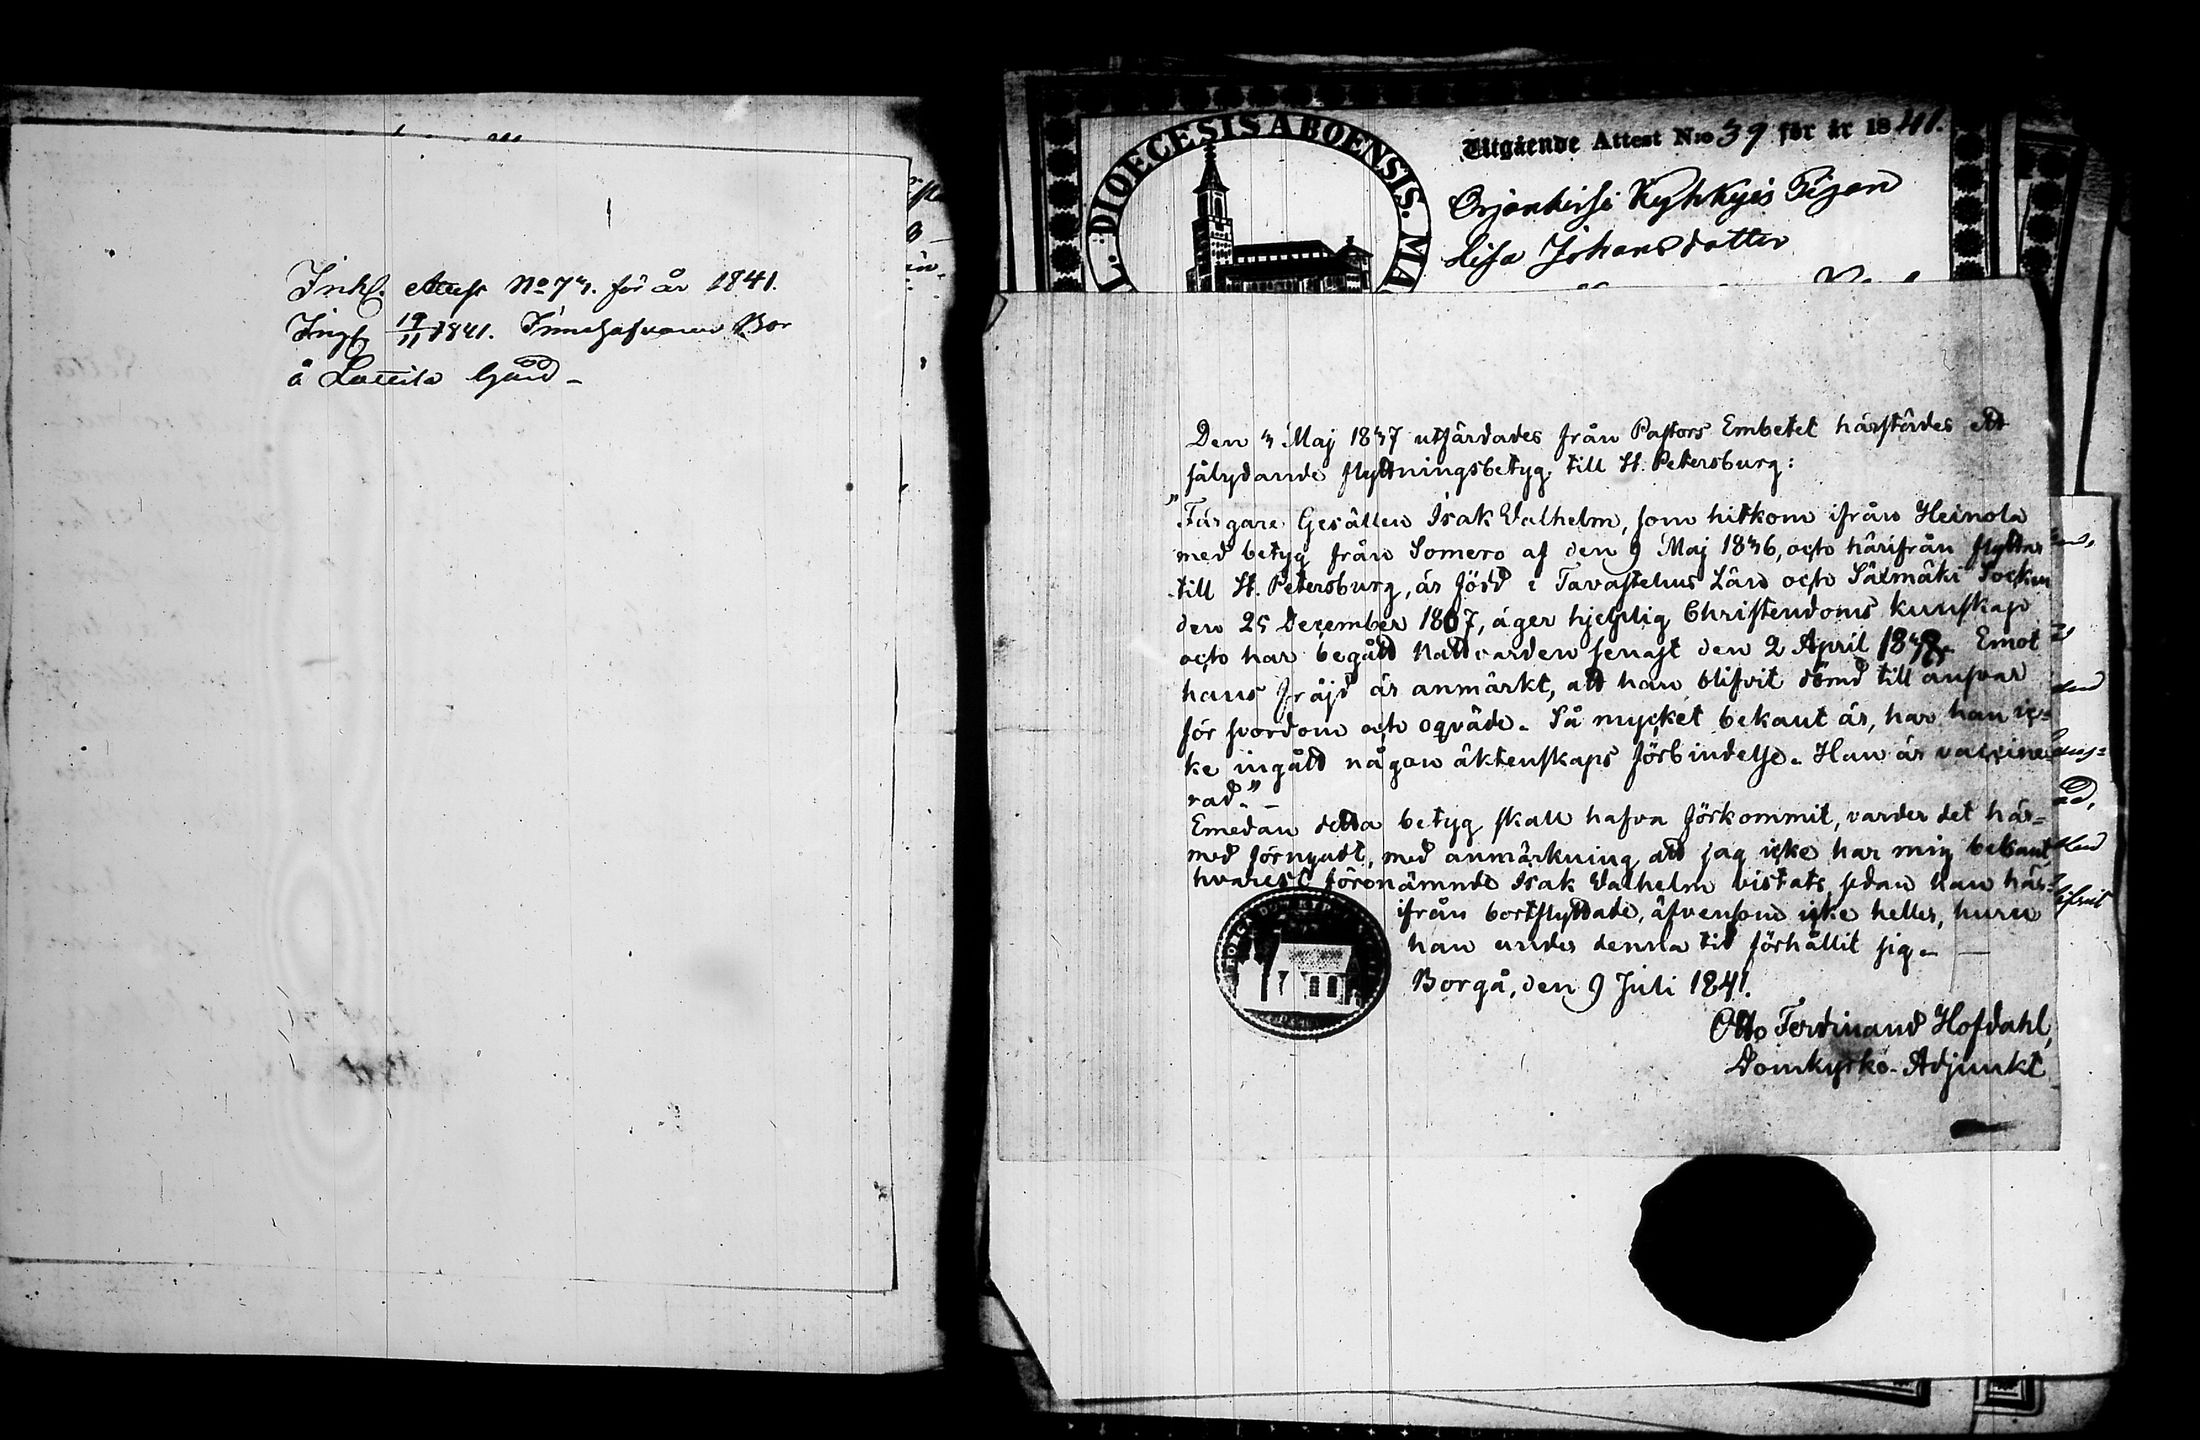 Inkl. Attest No 73. för år 1841.
Ingf 19/11 1841. Bor
å Lattila Gård –
L. DIOECESIS ABOENSIS. MA
Utgående Attest N:o 39 för år 1841.
Kyhkyis Pigan
Lisa Johansdotter
Den 3 Maj 1837 utfärdades från Pastors Embetet härstädes ett
sålydande flyttningsbetyg till St. Petersburg:
"Färgare Gesällen Isak Valhelm, som hitkom ifrån Heinola
med betyg från Somero af den 9 Maj 1836, och härifrån flyttar
till St. Petersburg, är född i Tavastehus Län och Säxmäki Socken
den 25 December 1807, äger hjelplig Christendoms kunskap
och har begått Nattvarden senast den 2 April 1837. Emot
hans fräjd är anmärkt, att han blifvit dömd till ansvar
för svordom och oqväde. Så mycket bekant är, har han ic=
ke ingått någon äktenskaps förbindelse. Han är vaccine=
rad." –
Emedan detta betyg skall hafva förkommit, varder det här=
med förnyadt, med anmärkning att jag icke har mig bekant,
hvarest förenämnde Isak Valhelm vistats, sedan han här=
ifrån bortflyttade, äfvensom icke heller, huru
han under denna tid förhållit sig. –
Borgå, den 9 Juli 1841.
Otto Ferdinand Hofdahl,
Domkyrko-Adjunkt